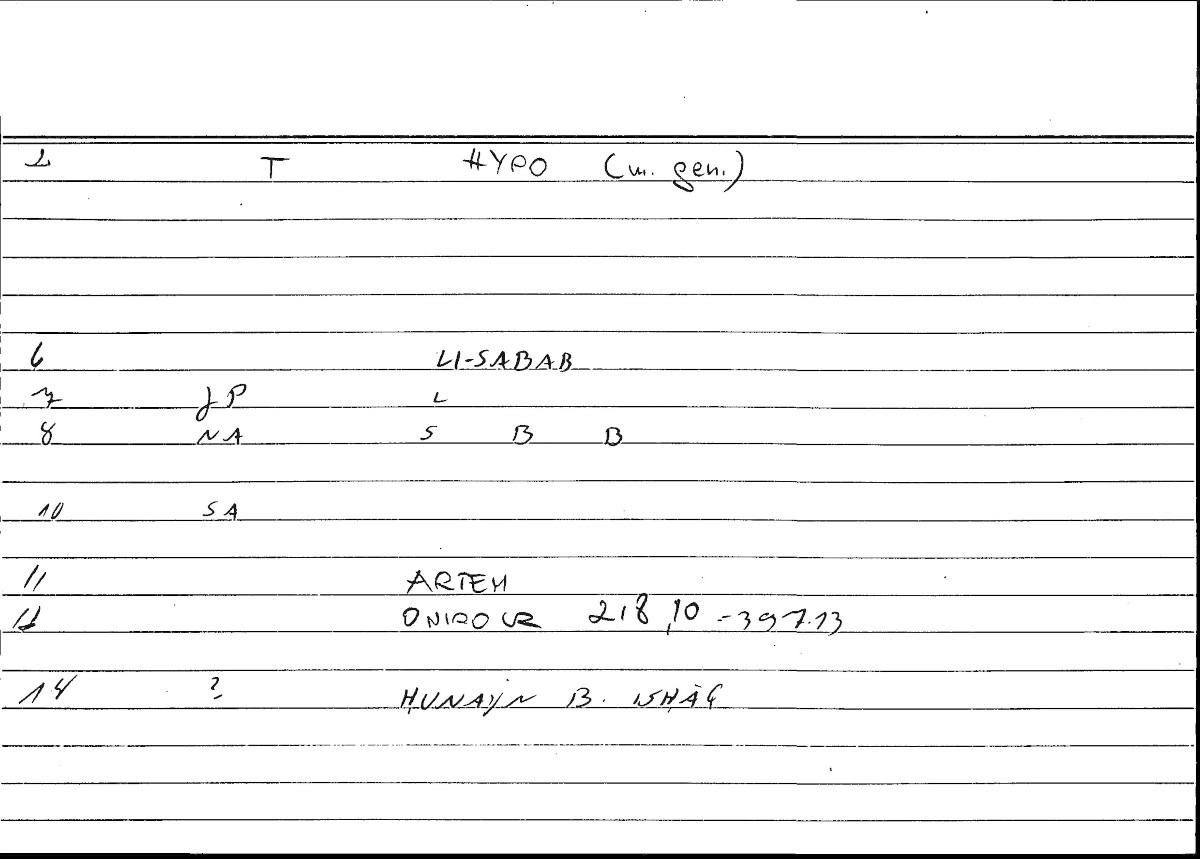 2 T HYPO (m. gen.)
6 LI-SABAB
7 JP L
8 NA S B B
10 SA
11 ARTEM
12 ONIROCR 218,10 - 397.13
14 ? ḤUNAYN B. ISḤĀQ